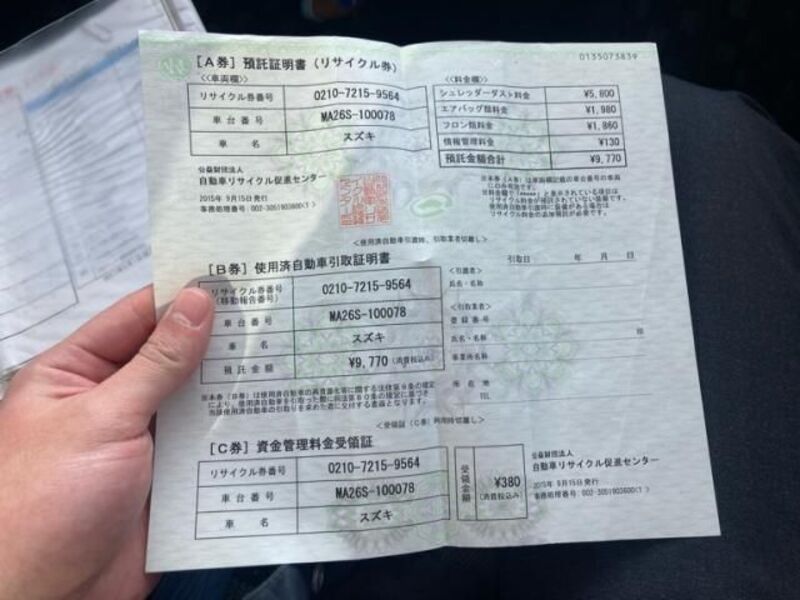 [A券] 預託証明書 (リサイクル券)
0135073839
<<車両欄>>
リサイクル券番号 0210-7215-9564
車台番号 MA26S-100078
車名 スズキ
<料金欄>
シュレッダーダスト料金 ¥5,800
エアバッグ類料金 ¥1,980
フロン類料金 ¥1,860
情報管理料金 ¥130
預託金額合計 ¥9,770
公益財団法人
自動車リサイクル促進センター
2015年 9月15日発行
<使用済自動車引渡時、引取業者切離し>
[B券] 使用済自動車引取証明書
引取日 年 月 日
リサイクル券番号 0210-7215-9564
(移動報告番号)
車台番号 MA26S-100078
車名 スズキ
預託金額 ¥9,770 (消費税込み)
<引渡者>
氏名・名称
<引取業者>
登録番号
氏名・名称 印
事業所名称
所在地
TEL
<受領証(C券)利用時切離し>
[C券] 資金管理料金受領証
リサイクル券番号 0210-7215-9564
車台番号 MA26S-100078
車名 スズキ
受領金額 ¥380
(消費税込み)
公益財団法人
自動車リサイクル促進センター
2015年 9月15日発行